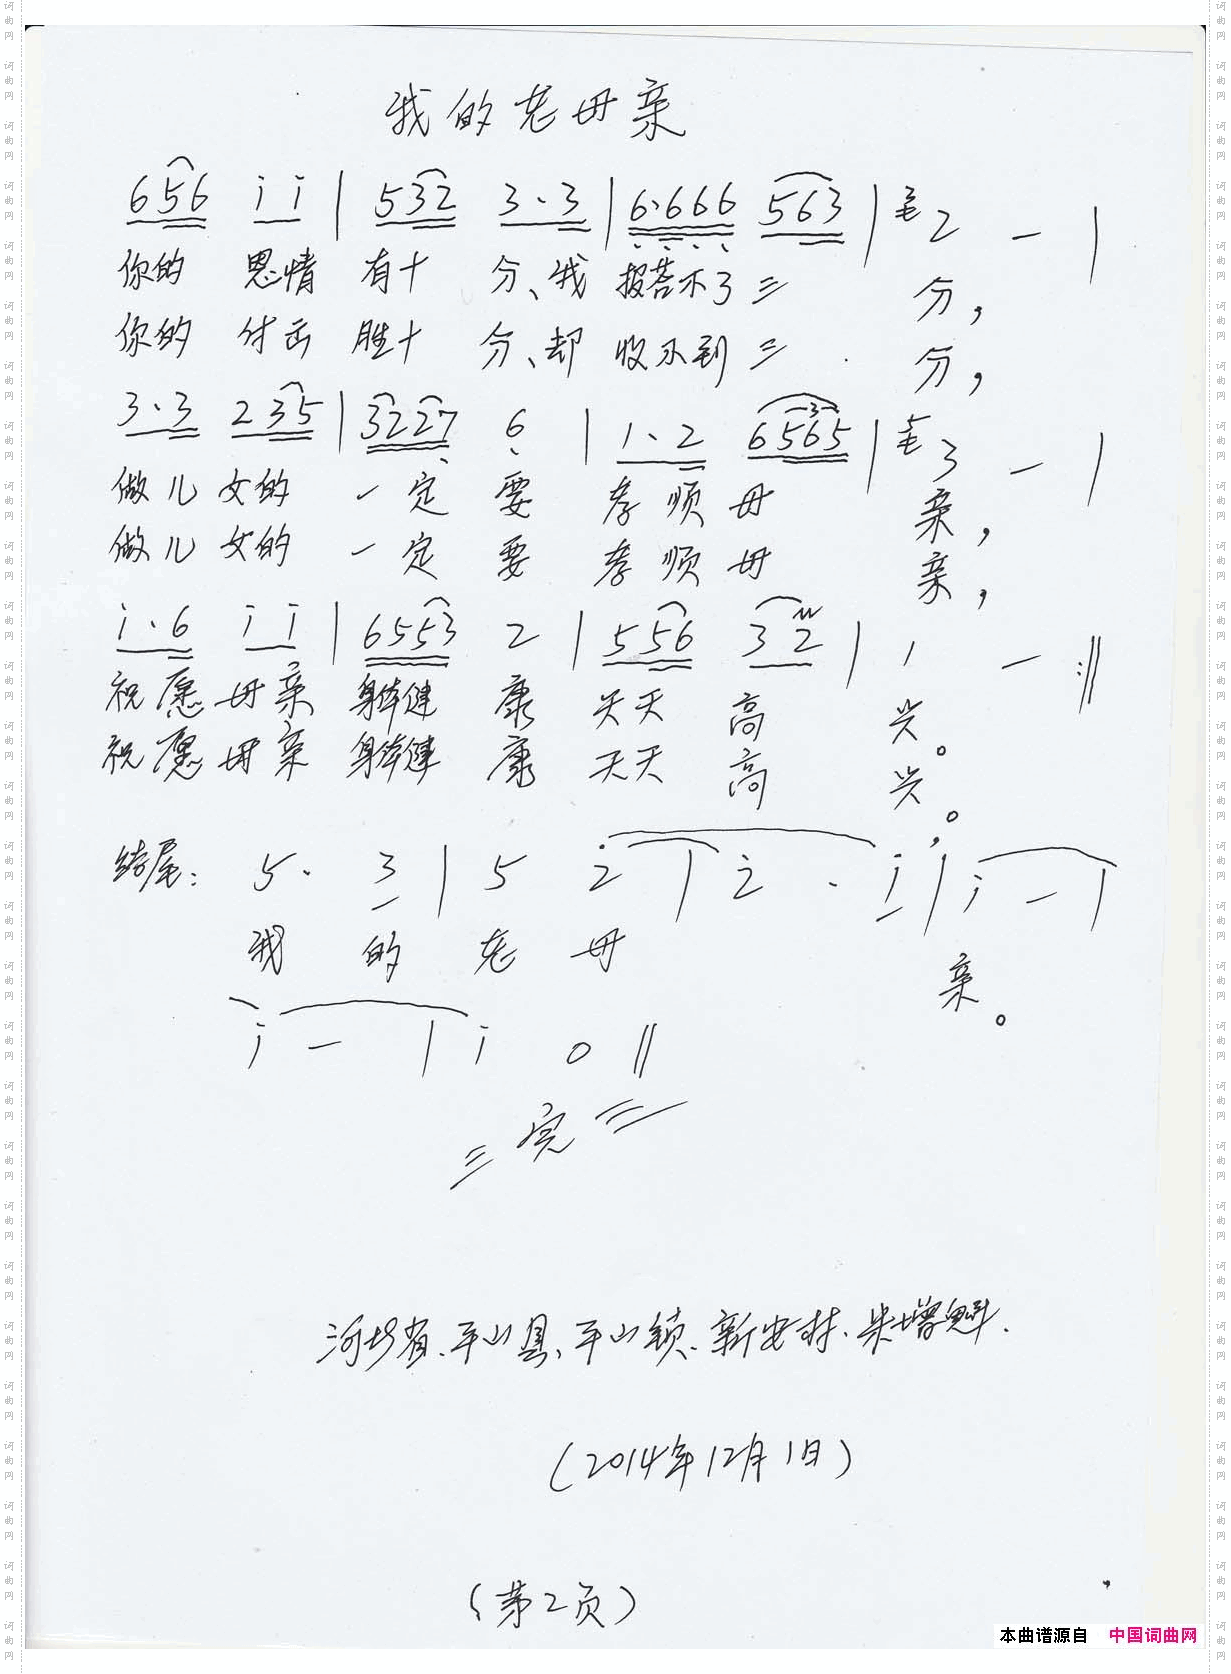 我的老母亲
656 i i | 532 3·3 | 6·666 563 | 2 - |
你的 恩情 有十 分、我 报答不了三 分，
你的 付出 胜十 分、却 收不到三 分，
3·3 235 | 3227 6 | 1·2 6565 | 3 - |
做儿女的 一定要 孝顺母 亲，
做儿女的 一定要 孝顺母 亲，
i·6 i i | 6553 2 | 556 32 | 1 - :||
祝愿母亲 身体健康 天天高兴。
祝愿母亲 身体健康 天天高兴。
结尾： 5· 3 | 5 2 | 2 · i | i - |
我 的 老 母 亲。
i - | i 0 ||
三完三
河北省、平山县、平山镇、新安村、朱增魁.
(2014年12月1日)
(第2页)
本曲谱源自 中国词曲网